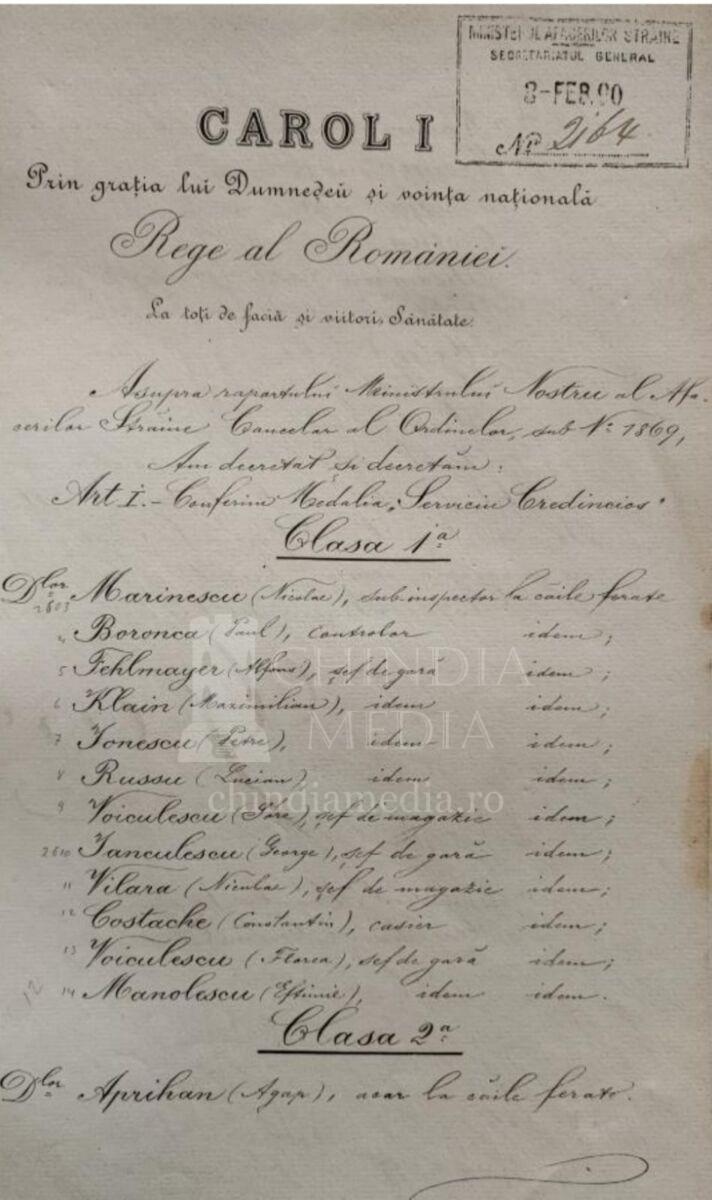 MINISTERUL AFACERILOR STRĂINE
SECRETARIATUL GENERAL
8-FEB.90
Nr. 2164
CAROL I
Prin grația lui Dumneḑeŭ și voința națională
Rege al României.
La toți de faciă și viitori, Sănătate.
Asupra raportului Ministrului Nostru al Afa-
cerilor Străine Cancelar al Ordinelor, sub No 1869,
Am decretat și decretăm:
Art I.- Conferim Medalia „Serviciu Credincios"
Clasa 1a
Dlor Marinescu (Nicolae), subinspector la căile ferate
2603
4 Boronca (Paul), controlor idem;
5 Fehlmayer (Alfons), șef de gară idem;
6 Klain (Maximilian), idem idem;
7 Ionescu (Petre), idem idem;
8 Russu (Lucian) idem idem;
9 Voiculescu, șef de magazie idem;
2610 Ianculescu (George), șef de gară idem;
11 Vilara (Niculae), șef de magazie idem;
12 Costache (Constantin), casier idem;
13 Voiculescu (Florea), șef de gară idem;
14 Manolescu (Eftimie), idem idem.
12
Clasa 2a
Dlor Aprihan (Agap), acar la căile ferate.
CHINDIA
MEDIA
chindiamedia.ro